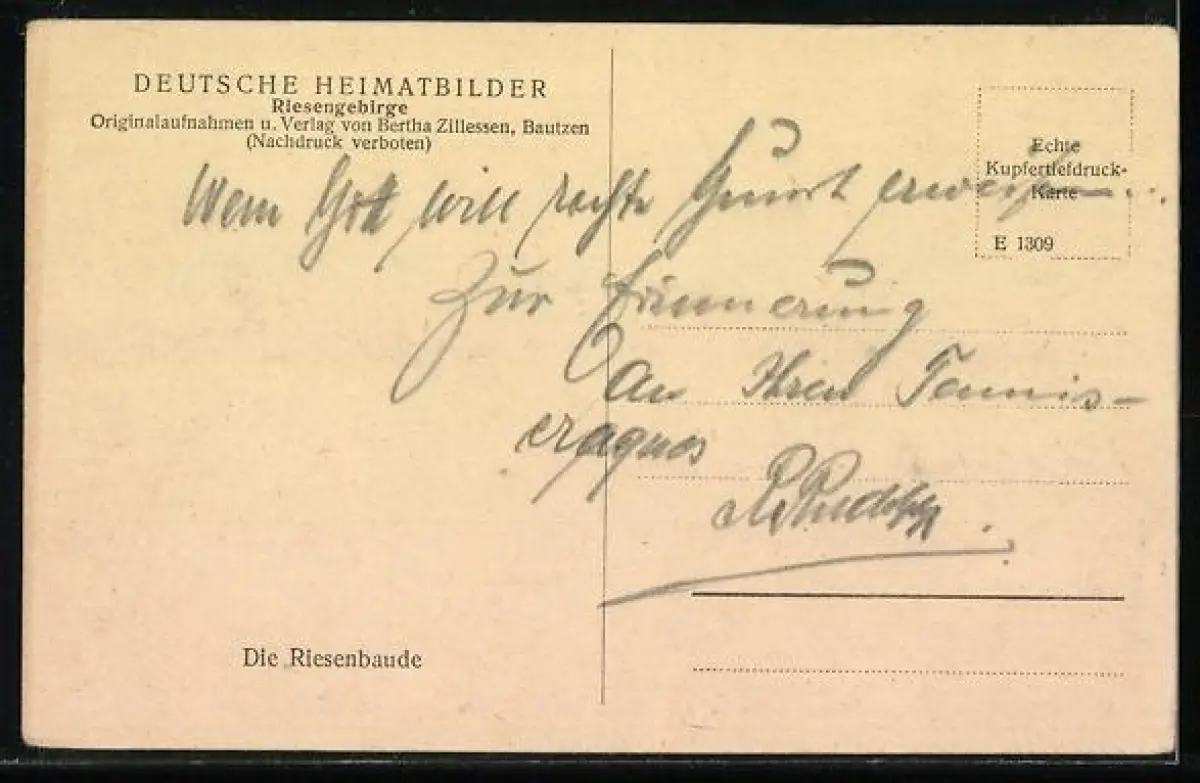 DEUTSCHE HEIMATBILDER
Riesengebirge
Originalaufnahmen u. Verlag von Bertha Zillessen, Bautzen
(Nachdruck verboten)
Echte
Kupfertiefdruck-
Karte
E 1309
Wem Gott will rechte Gunst erweisen...
Zur Erinnerung
an Ihren Tennis-
Die Riesenbaude